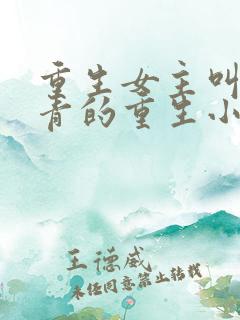 重生女主叫
青的重生小
王德威
未经同意禁止转载